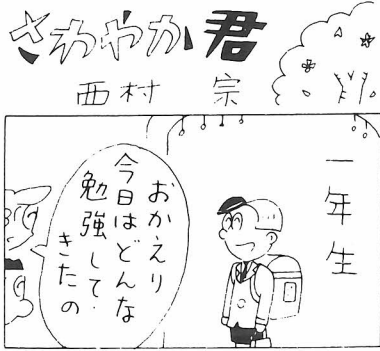 さわやか君
西村 宗
一年生
おかえり
今日はどんな
勉強して
きたの